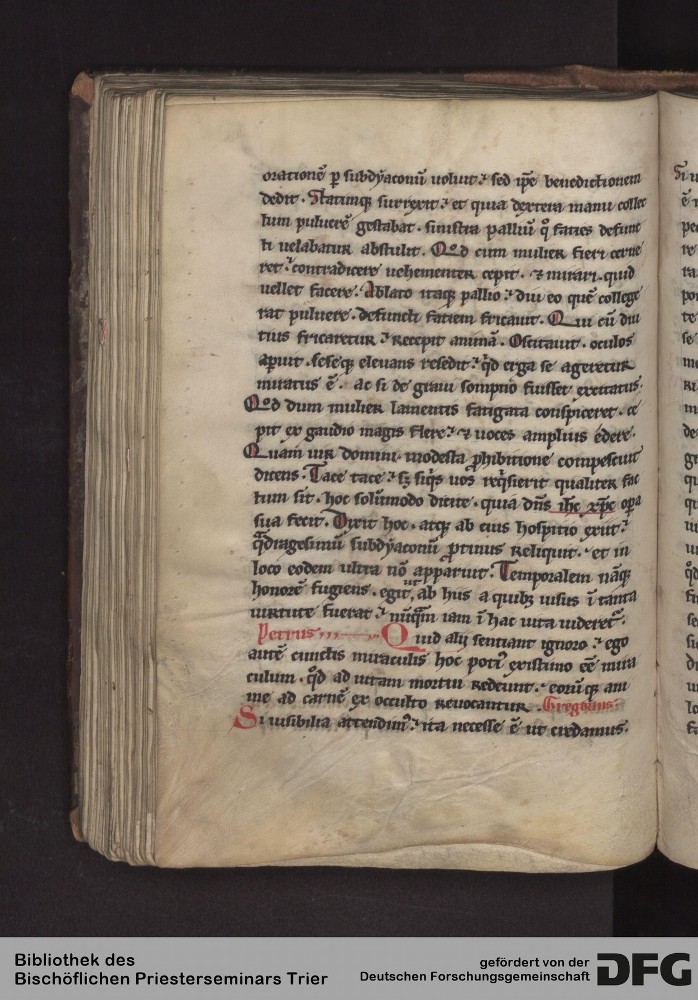 orationē p subdyaconū uoluit. sed ipe benedictionem
dedit. Statimq; surrexit. et quia dextera manu collec
tum puluerē gestabat. sinistra palliū q̊ facies defunc
ti uelabatur abstulit. Qod cum mulier fieri cerne
ret. contradicere uehementer cepit. & mirari. quid
uellet facere. Ablato itaq; pallio. diu eo quē college
rat puluere. defuncti faciem fricauit. Qui cū diu
tius fricaretur. recepit animā. Oscitauit. oculos
aperuit. seseq; eleuans resedit. qd erga se ageretur
miratus ē. ac si de graui sompno fuisset excitatus.
Qod dum mulier lamentis fatigata conspiceret. ce
pit ex gaudio magis flere. & uoces amplius edere.
Quam uir domini. modesta phibitione compescuit
dicens. Tace tace. sz siqs uos reqsierit qualiter fac
tum sit. hoc solūmodo dicite. quia dns ihc xpc opa
sua fecit. Dixit hoc. atq; ab eius hospitio exiit.
qdragesimū subdyaconū ptinus reliquit. et in
loco eodem ultra nō apparuit. Temporalem nāq;
honorē fugiens. egit ut ab hiis a quibz uisus ī tanta
uirtute fuerat. nūqm iam ī hac uita uideret.
Petrus Quid alij sentiant ignoro. ego
autē cunctis miraculis hoc poti existimo eē mira
culum. qd ad uitam mortui redeunt. eorūq; ani
me ad carnē ex occulto reuocantur. Gregorius.
Si uisibilia attendim. ita necesse ē ut credamus.
Bibliothek des
Bischöflichen Priesterseminars Trier
gefördert von der
Deutschen Forschungsgemeinschaft
DFG